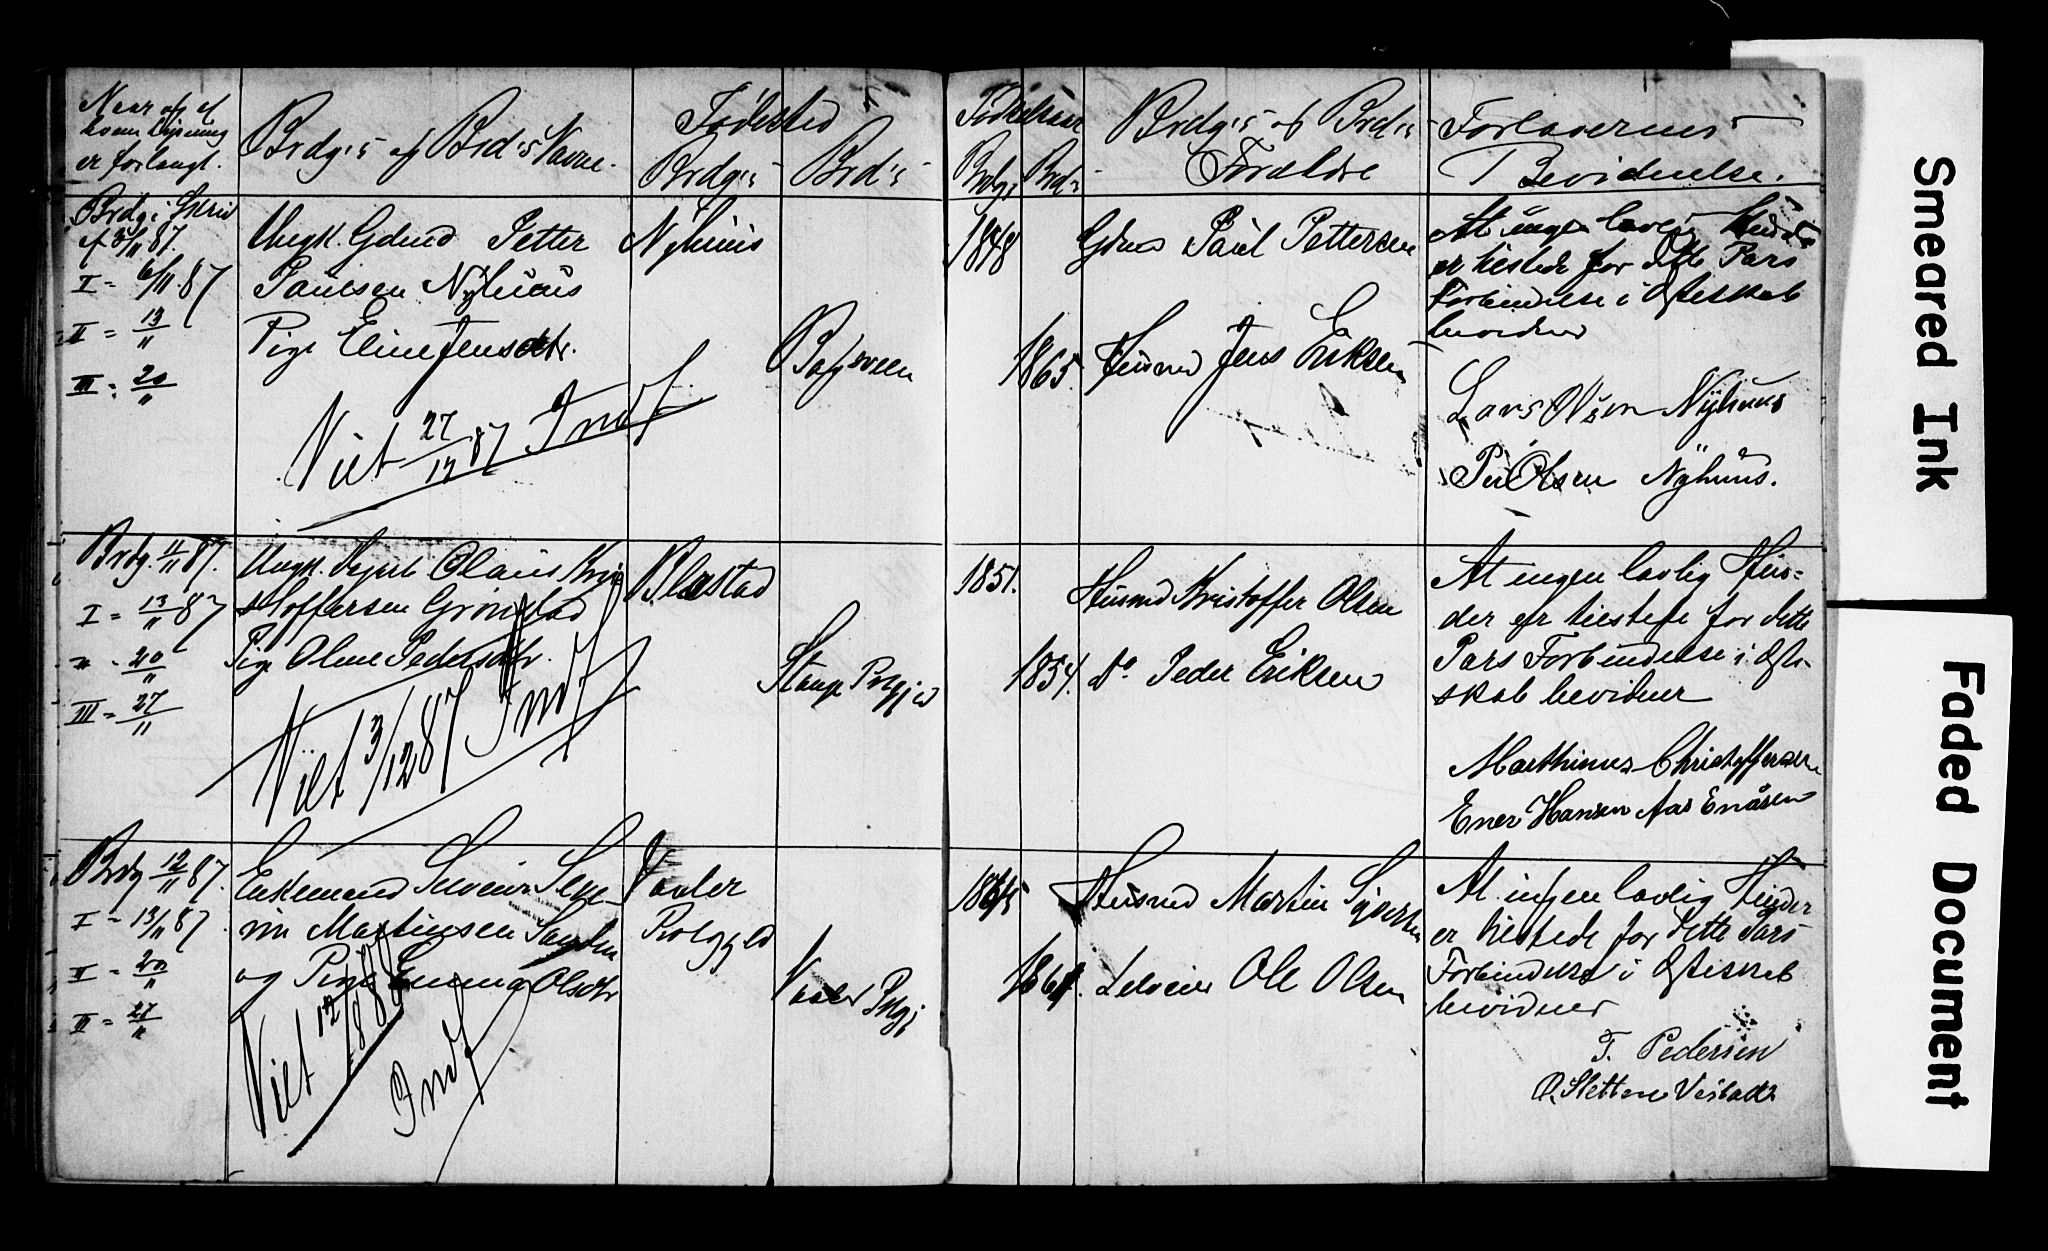 Naar og af
hvem Lysning
er forlangt.
Brdg's og Brd's Navne.
Fødested
Brdg's
Brd's
Fødselsaar
Brdg's
Brd's
Brdg's og Brd's
Forældre
Forlovernes
Bevidnelse.
Brdg
87.
I = 6/11 87
II = 13/11
III = 20/11
Ungk. Gdmd Petter
Paulsen Nyhuus
Pige Eline Jensdtr.
Viet 27/12 87 Indf
Nyhuus
1848
1865.
Gdmd Paul Pettersen
Husmd Jens Eriksen
At ingen lovl. Hinder
er tilstede for dette Pars
Forbindelse i Ægteskab
bevidner
Lars Olsen Nyhuus
Per Olsen Nyhuus.
Brdg. 11/11 87.
I = 13/11 87
" - 20/11
III = 27/11
Ungk. Olaus Kri
stoffersen Grønstad
Pige Oline Pedersdtr.
Viet 3/12 87 Indf
Blæstad
Stange Præstgjeld
1851.
1854.
Husmd Kristoffer Olsen
Do Peder Eriksen
At ingen lovlig Hin=
der er tilstede for dette
Pars Forbindelse i Ægte-
skab bevidner
Marthinus Christoffersen
Ener Hansen Aas Enåsen
Brdg 12/11 87.
I = 13/11 87
II = 20/11
II = 27/11
Enkemand Selveier Seve
rin Martinsen
og Pige Emma Olsdtr
Viet 12/1 88
Indf
Vaaler
Præstgjeld
Vaaler Prgj
Husmd Martin Sivertsen
Selveier Ole Olsen
At ingen lovlig Hinder
er tilstede for dette Pars
Forbindelse i Ægteskab
bevidner
T. Pedersen
O. Sletten Vestad
Smeared Ink
Faded Document